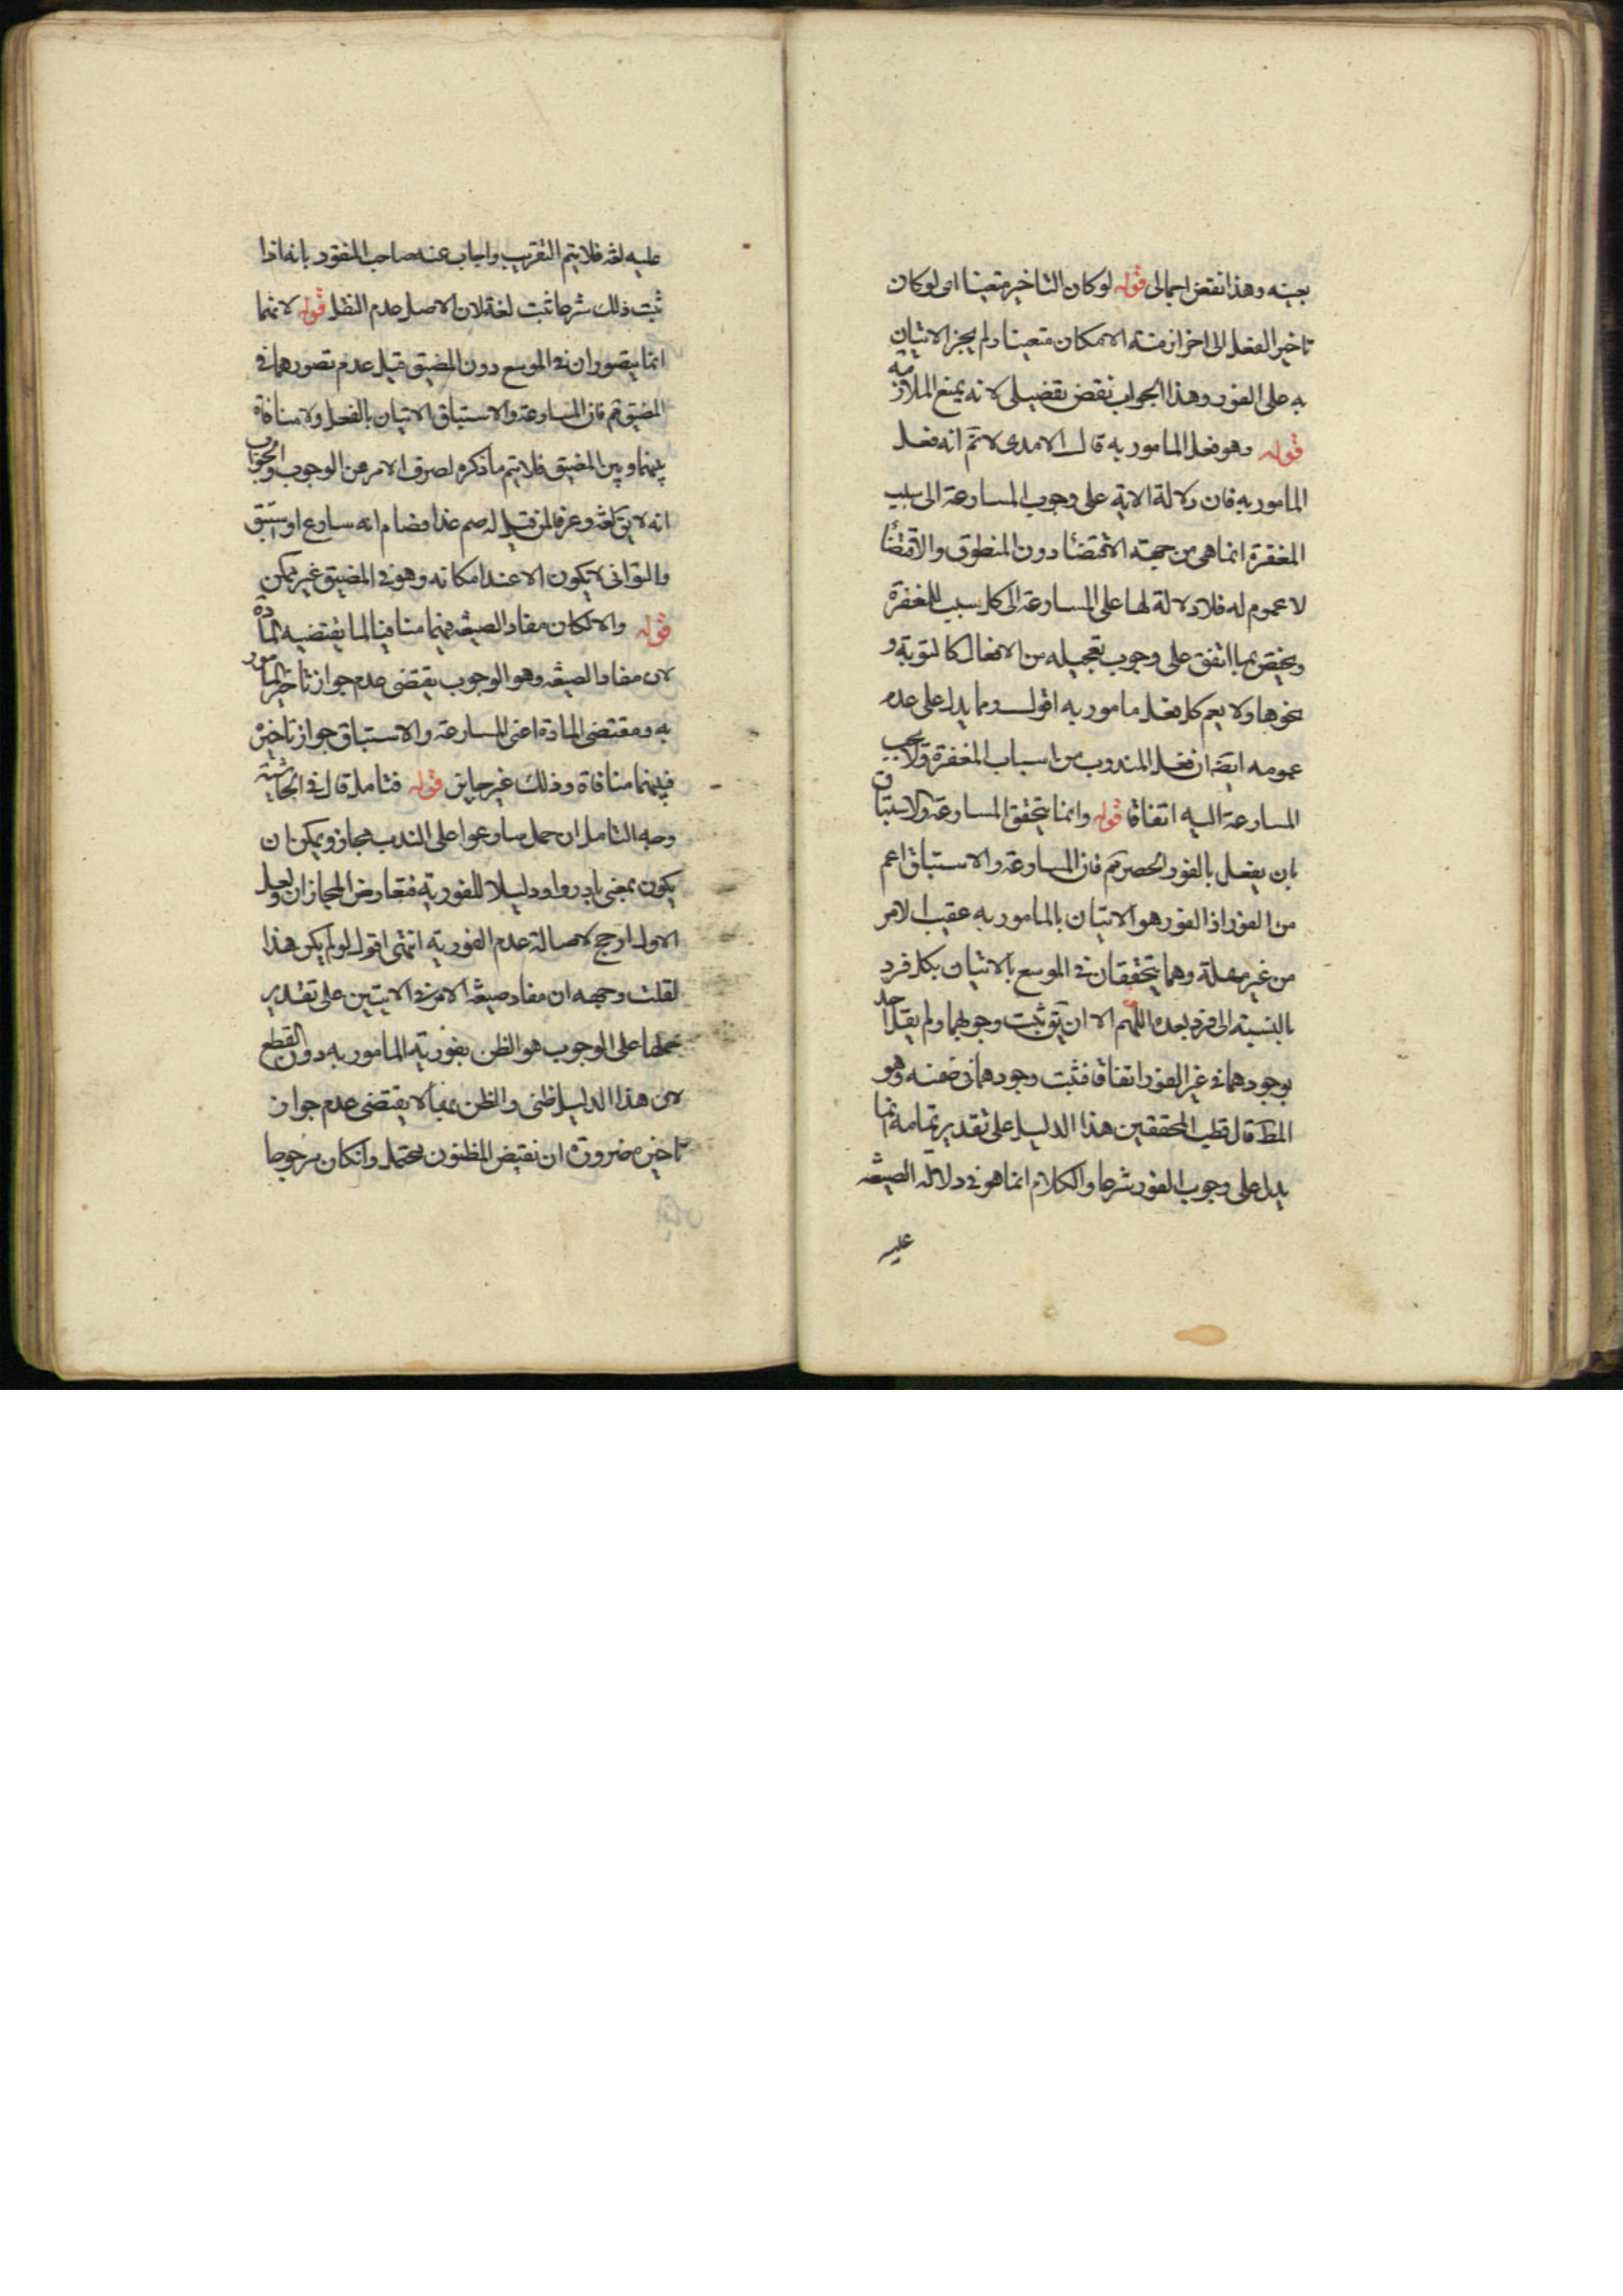 بعينه وهذا نقض اجمالى قوله لو كان التاخير متعينا اى لو كان
تاخير الفعل الى اخر ازمنته الامكان متعينا ولم يجز الاتيان
به على الفور وهذا الجواب نقض تفضيلى لانه يمنع الملازمة
قوله وهو فعل المامور به قال الامدى لا نم انه فعل
المامور به فان دلالة الاية على وجوب المسارعة الى سبب
المغفرة انما هى من جهته الاقتضا دون المنطوق والاقتضا
لا عموم له فلا دلالة لها على المسارعة الى كل سبب للمغفرة
ويختص بما اتفق على وجوب تعجيله من الافعال كالتوبة و
نحوها ولا يعم كل فعل مامور به اقول ومما يدل على عدم
عمومه ايضا ان فعل المندوب من اسباب المغفرة ولا يجب
المسارعة اليه اتفاقا قوله وانما يتحقق المسارعة والاستباق
بان يفعل بالفور الحصر مم فان المسارعة والاستباق اعم
من الفور اذ الفور هو الاتيان بالمامور به عقيب الامر
من غير مهلة وهما يتحققان فى الموسع بالاتيان بكل فرد
بالنسبته الى فرد بعده اللهم الا ان يق ثبت وجوبهما ولم يقل احد
بوجودهما فى غير الفور اتفاقا فثبت وجودهما فى ضمنه وهو
المط قال قطب المحققين هذا الدليل على تقدير تمامه انما
يدل على وجوب الفور شرعا والكلام انما هو فى دلالة الصيغه
عليه
عليه لغة فلا يتم التقريب واجاب عنه صاحب النقود بانه اذا
ثبت ذلك شرعا ثبت لغة لان الاصل عدم النقل قوله لانهما
انما يتصوران فى الموسع دون المضيق قيل عدم تصورهما فى
المضيق مم فان المسارعة والاستباق الاتيان بالفعل ولا منافاة
بينهما وبين المضيق فلا يتم ما ذكره لصرف الامر عن الوجوب والجواب
انه لا يق لغة وعرفا لمن قيل له صم غدا فصام انه سارع او استبق
والتوانى لا يكون الا عند امكانه وهو فى المضيق غير ممكن
قوله والا لكان مفاد الصيغه فيهما منافيا لما يقتضيه المادة
لان مفاد الصيغه وهو الوجوب يقتضى عدم جواز تاخير المامور
به ومقتضى المادة اعنى المسارعة والاستباق جواز تاخيره
فبينهما منافاة وذلك غير جايز قوله فتامل قال فى الحاشية
وجه التامل ان حمل سارعوا على الندب مجاز ويمكن ان
يكون بمعنى بادروا ودليلا للفورية فتعارض المجازان ولعل
الاول ارجح لاصالة عدم الفورية انتهى اقول لو لم يكن هذا
لقلت وجهه ان مفاد صيغه الامر فى الايتين على تقدير
حملها على الوجوب هو الظن بفورية المامور به دون القطع
لان هذا الدليل ظنى والظن بها لا يقتضى عدم جواز
تاخيره ضرورة ان نقيض المظنون محتمل وان كان مرجوحا